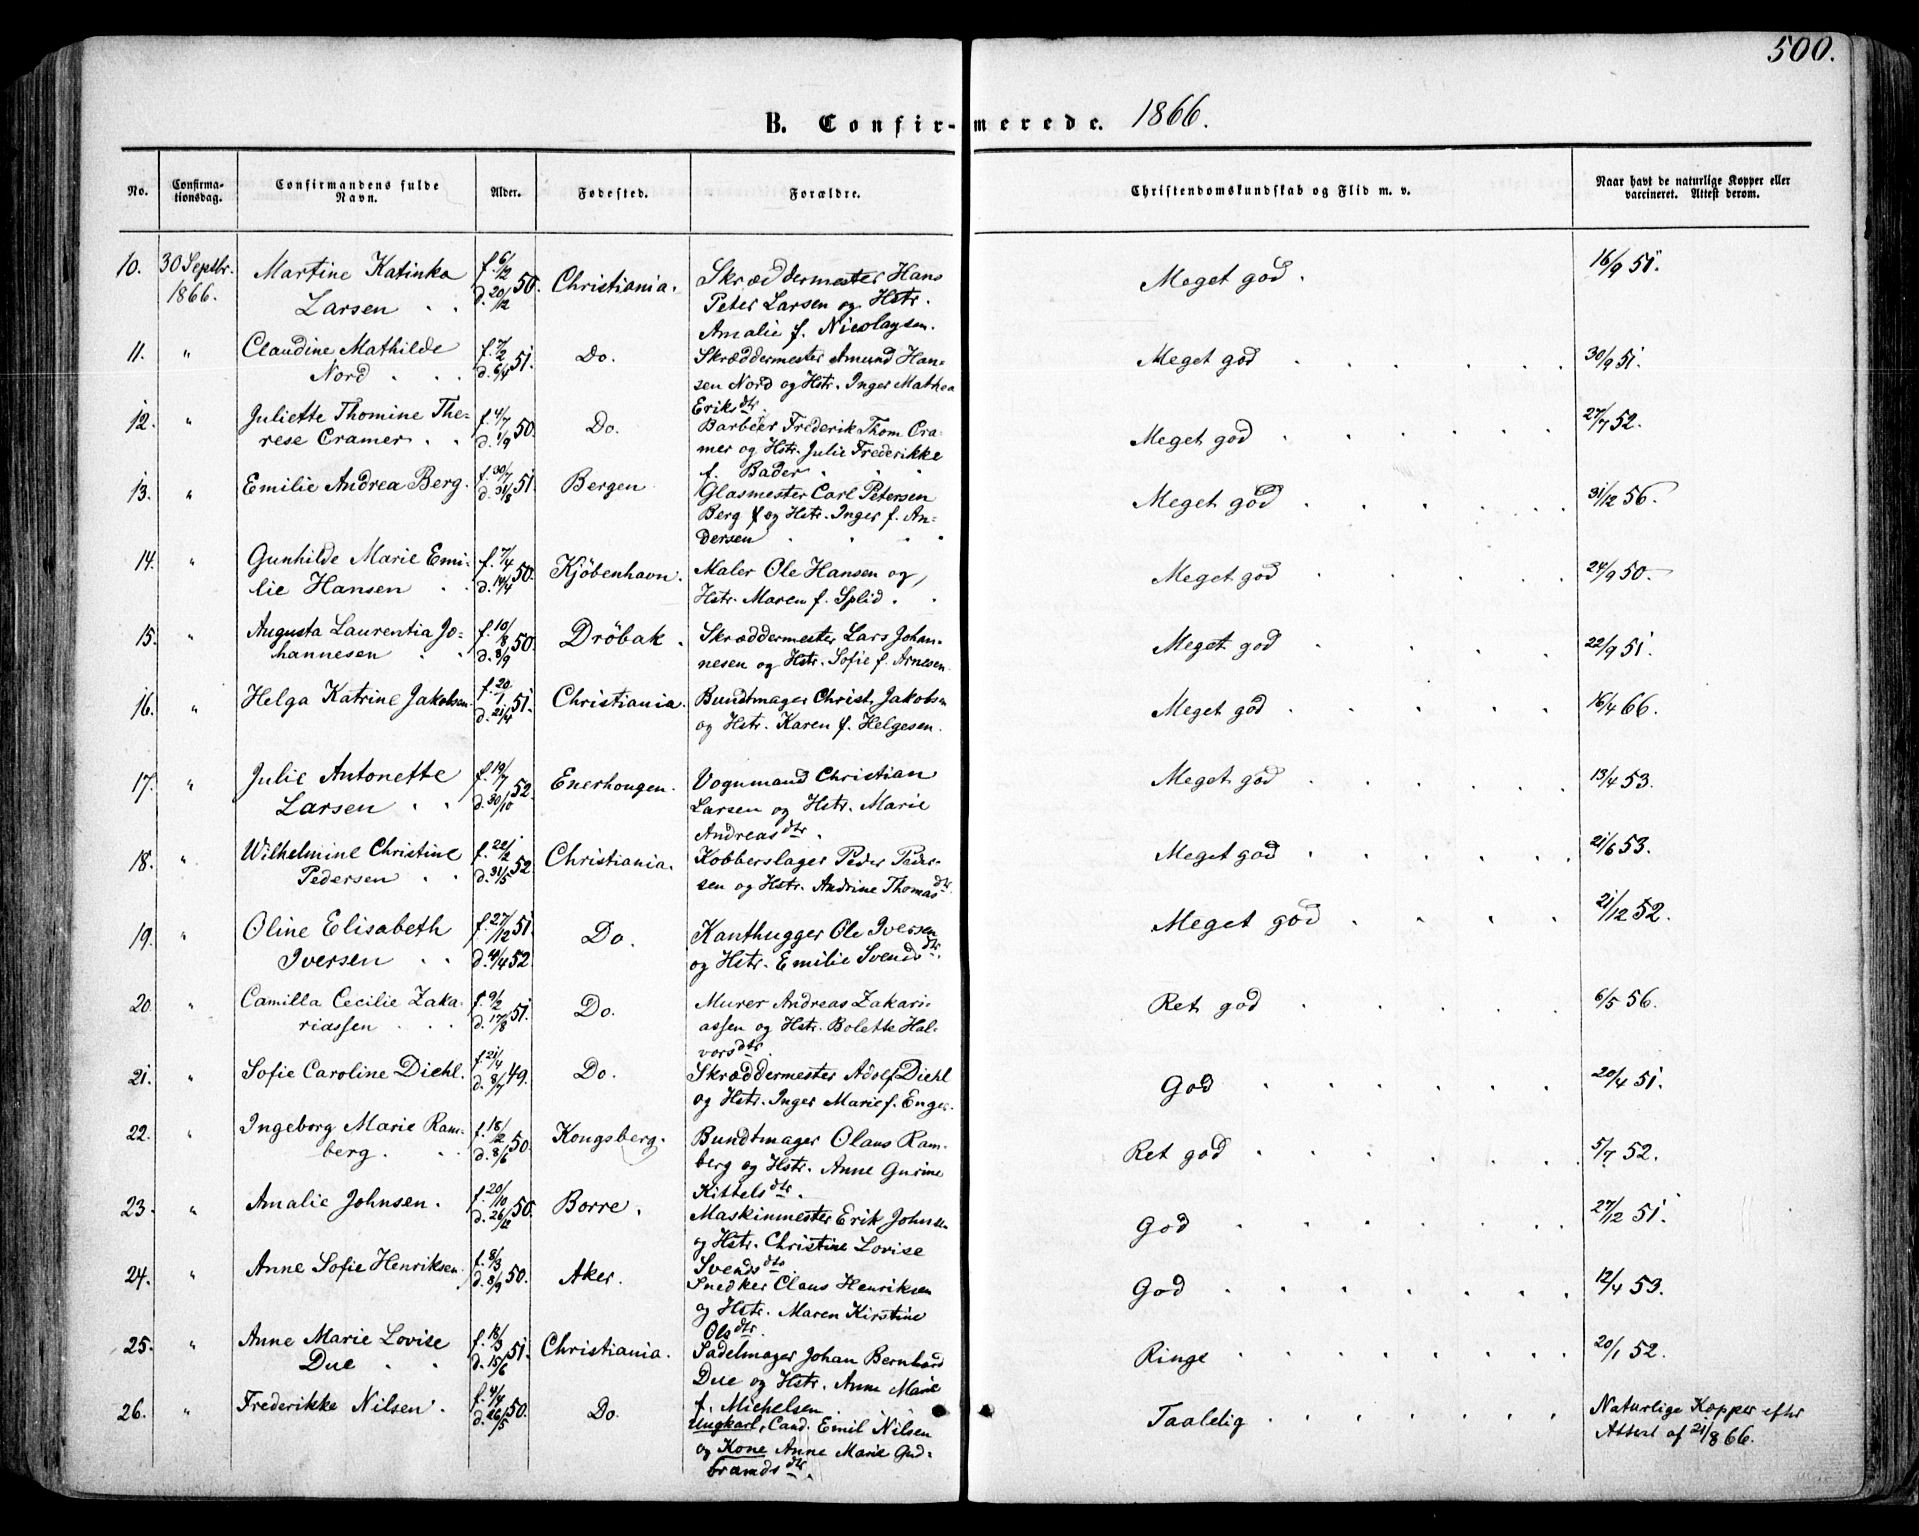 500.
B. Confirmerede. 1866.
No. Confirmationsdag. Confirmandens fulde Navn. Alder. Fødested. Forældre. Christendomskundskab og Flid m. v. Naar havt de naturlige Kopper eller vaccineret. Attest derom.
10. 30 Septbr. Martine Katinka f. 6/12 50. Christiania. Skræddermester Hans Meget god. 16/9 51.
1866. Larsen d. 20/12 Peter Larsen og Hstr.
Amalie f. Nicolaysen.
11. " Claudine Mathilde f. 7/2 51. Do. Skræddermester Amund Han- Meget god 30/9 51.
Nord d. 6/4 sen Nord og Hstr. Inger Mathea
Eriksdtr.
12. " Juliette Thomine The- f. 4/7 50. Do. Barbeer Frederik Thom Cra- Meget god 27/7 52.
rese Cramer d. 1/9 mer og Hstr. Julie Frederikke
f. Bader
13. " Emilie Andrea Berg. f. 30/7 51. Bergen Glasmester Carl Petersen Meget god 31/12 56.
d. 31/8 Berg og Hstr. Inger f. An-
dersen
14. " Gunhilde Marie Emi- f. 7/4 50. Kjøbenhavn. Maler Ole Hansen og Meget god 24/9 50.
lie Hansen d. 14/4 Hstr. Maren f. Splid.
15. " Augusta Laurentia Jo- f. 10/8 50. Drøbak. Skræddermester Lars Johan- Meget god 22/9 51.
hannesen d. 8/9 nesen og Hstr. Sofie f. Arnesen.
16. " Helga Katrine Jakobsen f. 20/1 51. Christiania. Bundtmager Christ. Jakobsen Meget god 16/4 66.
d. 21/4 og Hstr. Karen f. Helgesen.
17. " Julie Antonette f. 19/7 52. Enerhougen. Vognmand Christian Meget god 13/4 53.
Larsen d. 30/10 Larsen og Hstr. Marie
Andreasdtr.
18. " Wilhelmine Christine f. 22/2 52 Christiania. Kobberslager Peder Peder- Meget god 21/6 53.
Pedersen d. 31/5 sen og Hstr. Andrine Thomasdtr.
19. " Oline Elisabeth f. 27/12 51. Do. Kanthugger Ole Iversen Meget god 21/12 52.
Iversen d. 4/4 52. og Hstr. Emilie Svendsdtr.
20. " Camilla Cecilie Zaka- f. 9/2 51. Do. Murer Andreas Zakari- Ret god 6/5 56.
riassen d. 17/8 assen og Hstr. Bolette Hal-
vorsdtr.
21. " Sofie Caroline Diehl. f. 21/4 49. Do. Skræddermester Adolf Diehl God 20/4 51.
d. 8/7 og Hstr. Inger Marie f. Enger.
22. " Ingeborg Marie Ram- f. 18/2 50. Kongsberg. Bundtmager Olaus Ram- Ret god 5/7 52.
berg. d. 8/6 berg og Hstr. Anne Gurine
Kittelsdtr.
23. " Amalie Johnsen. f. 20/10 50. Borre. Maskinmester Erik Johnsen God 27/12 51.
d. 26/12 og Hstr. Christine Lovise
Svendsdtr
24. " Anne Sofie Henriksen. f. 8/3 50. Aker. Snedker Claus Henriksen God 12/4 53.
d. 8/9 og Hstr. Maren Kirstine
Olsdtr.
25. " Anne Marie Lovise f. 18/3 51. Christiania. Sadelmager Johan Bernhard Ringe 20/1 52.
Due d. 15/6 Due og Hstr. Anne Marie
f. Michelsen
26. " Frederikke Nilsen. f. 4/4 50. Do. Ungkarl, Cand. Emil Nilsen Taalelig Naturlige Kopper efter
d. 26/5 og Kone Anne Marie Gud- Attest af 21/8 66.
brandsdtr.